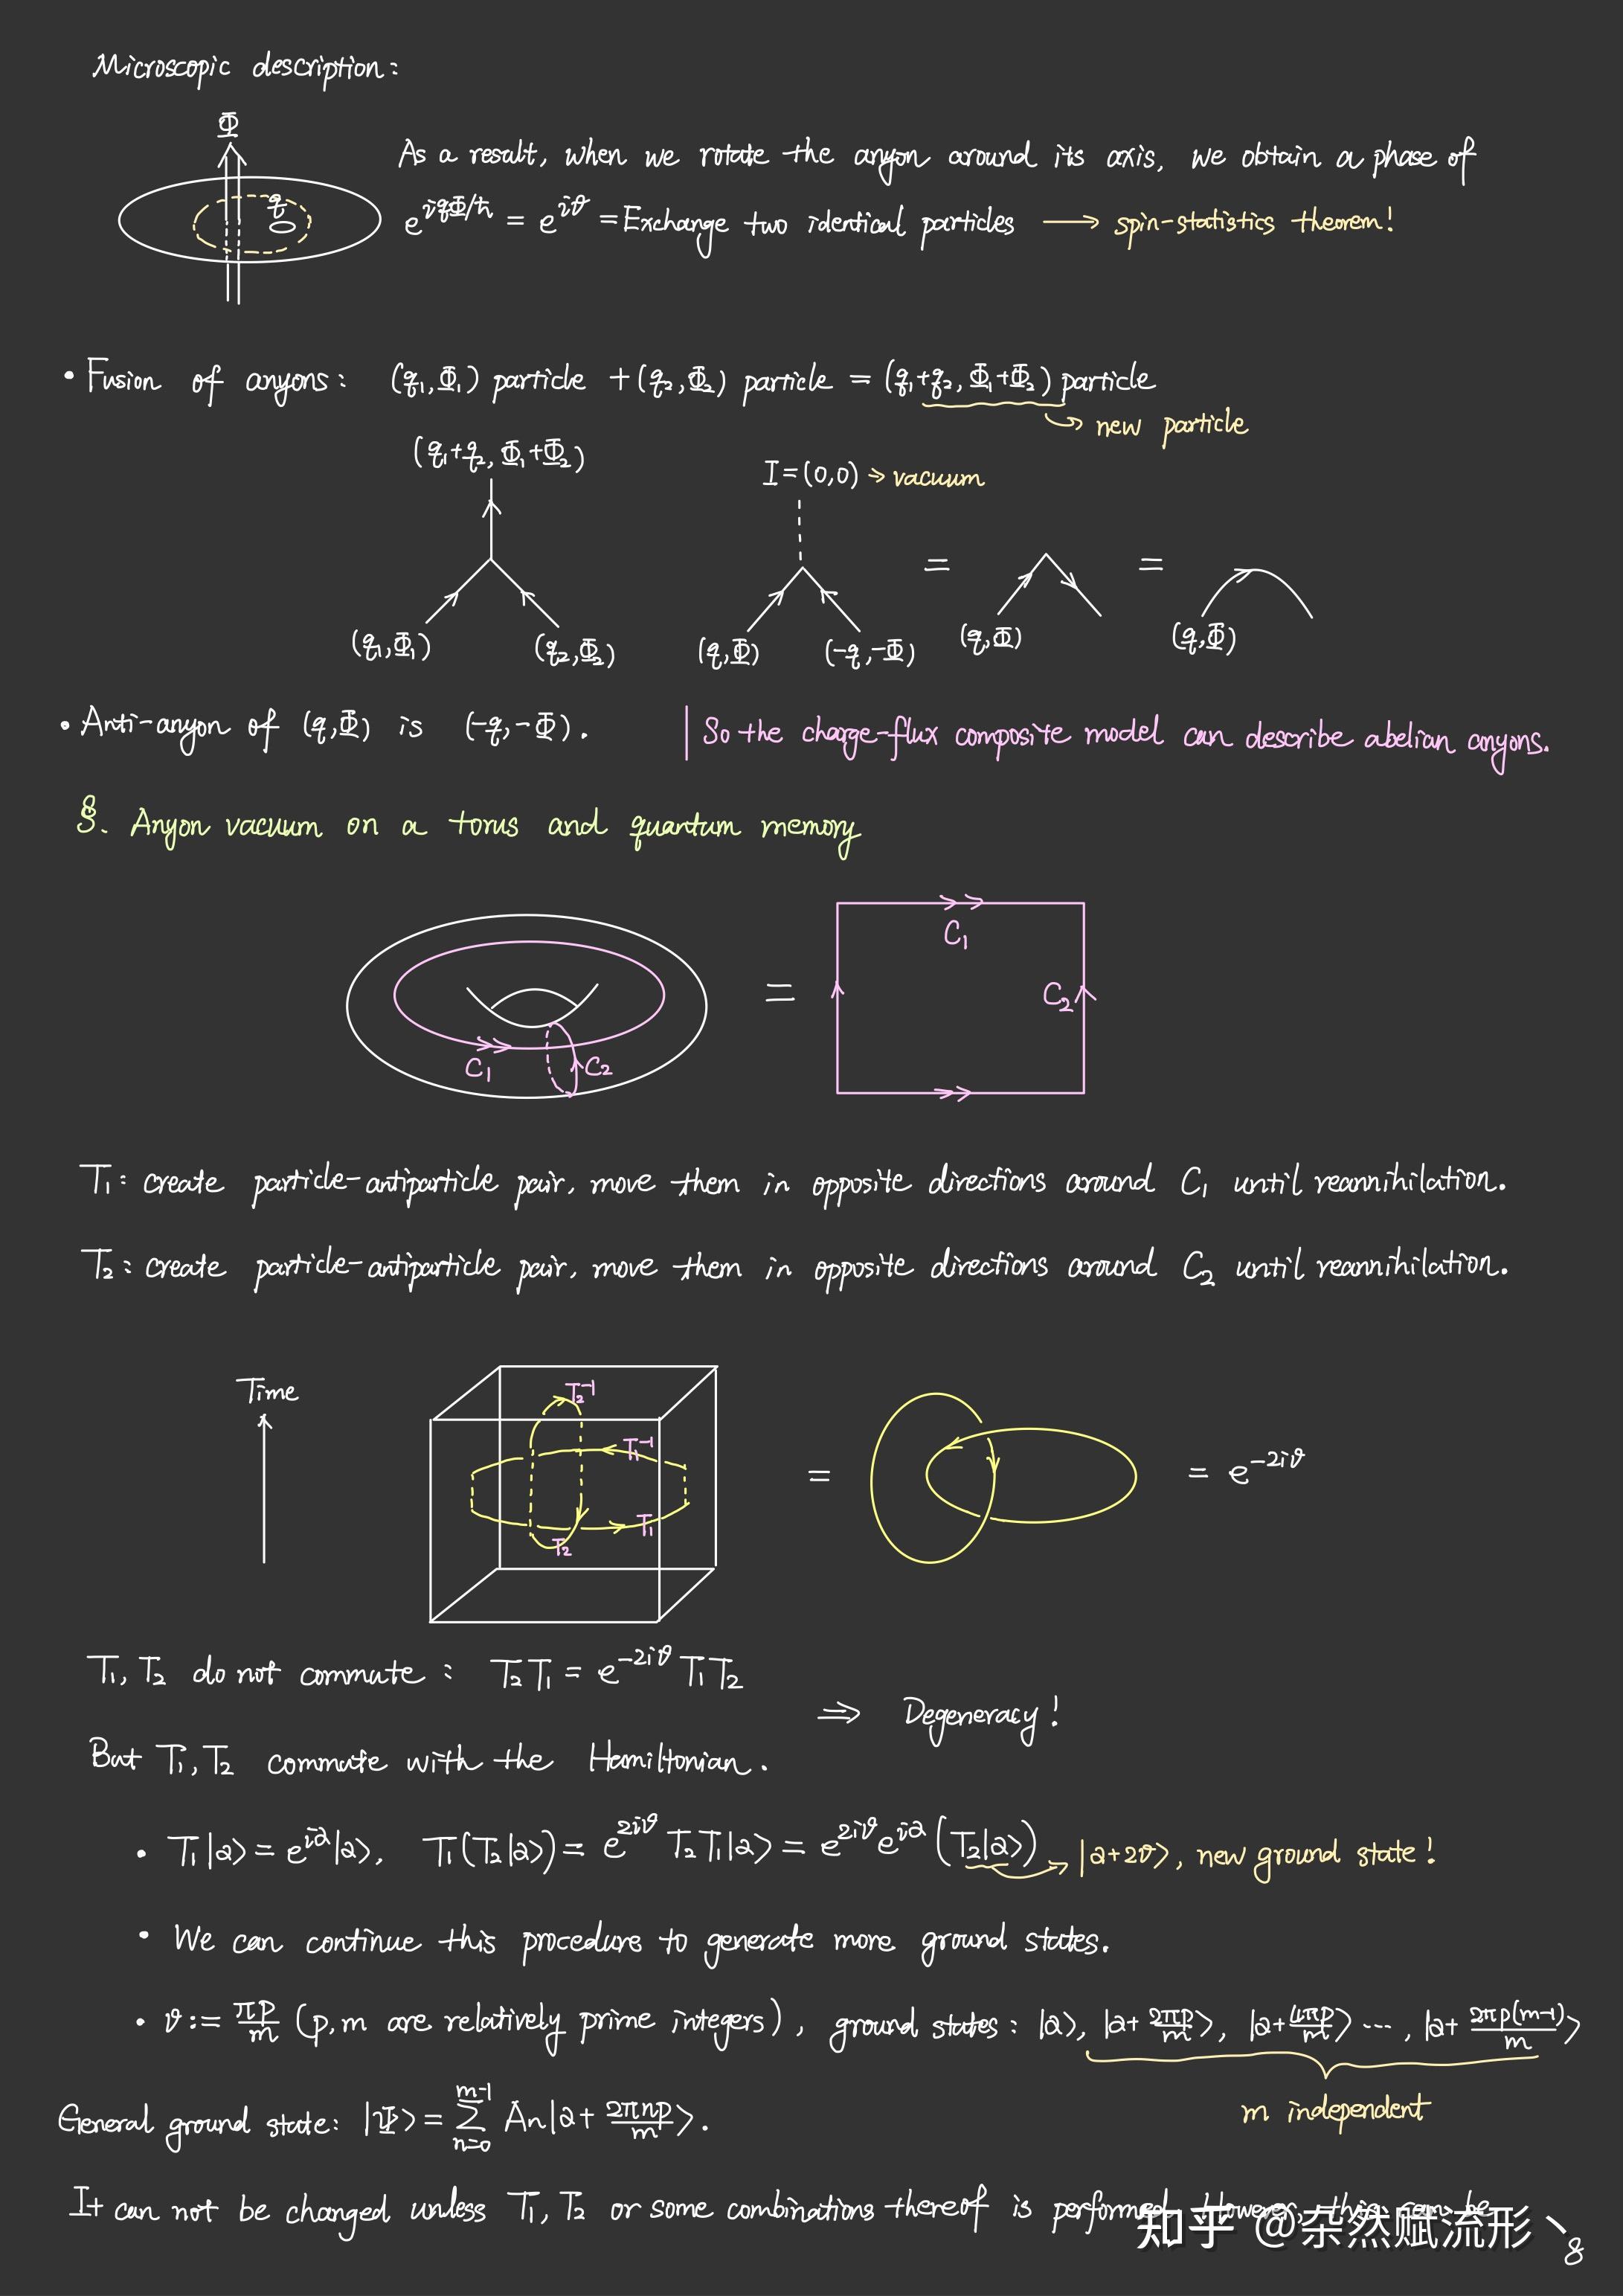 Microscopic description:
Φ
q
As a result, when we rotate the anyon around its axis, we obtain a phase of
e^{iqΦ/ħ} = e^{iϑ} = Exchange two identical particles → spin-statistics theorem!
• Fusion of anyons: (q₁,Φ₁) particle + (q₂,Φ₂) particle = (q₁+q₂, Φ₁+Φ₂) particle
↪ new particle
(q₁+q₂, Φ₁+Φ₂)
I=(0,0) → vacuum
= =
(q₁,Φ₁) (q₂,Φ₂) (q,Φ) (-q,-Φ) (q,Φ) (q,Φ)
• Anti-anyon of (q,Φ) is (-q,-Φ). | So the charge-flux composite model can describe abelian anyons.
§. Anyon vacuum on a torus and quantum memory
C₁ C₂ = C₁ C₂
T₁: create particle-antiparticle pair, move them in opposite directions around C₁ until reannihilation.
T₂: create particle-antiparticle pair, move them in opposite directions around C₂ until reannihilation.
Time
T₂⁻¹
T₁⁻¹
T₁
T₂
= = e^{-2iϑ}
T₁, T₂ do not commute: T₂T₁ = e^{-2iϑ} T₁T₂
⇒ Degeneracy!
But T₁, T₂ commute with the Hamiltonian.
• T₁|a⟩ = e^{ia}|a⟩, T₁(T₂|a⟩) = e^{2iϑ} T₂T₁|a⟩ = e^{2iϑ}e^{ia}(T₂|a⟩) → |a+2ϑ⟩, new ground state!
• We can continue this procedure to generate more ground states.
• ϑ := πp/m (p, m are relatively prime integers), ground states: |a⟩, |a+2πp/m⟩, |a+4πp/m⟩ ⋯, |a+2πp(m-1)/m⟩
m independent
General ground state: |Ψ⟩ = ∑_{n=0}^{m-1} An|a+2πnp/m⟩.
It can not be changed unless T₁, T₂ or some combinations thereof is performed. However, this can be
知乎 @杂然赋流形丶
8